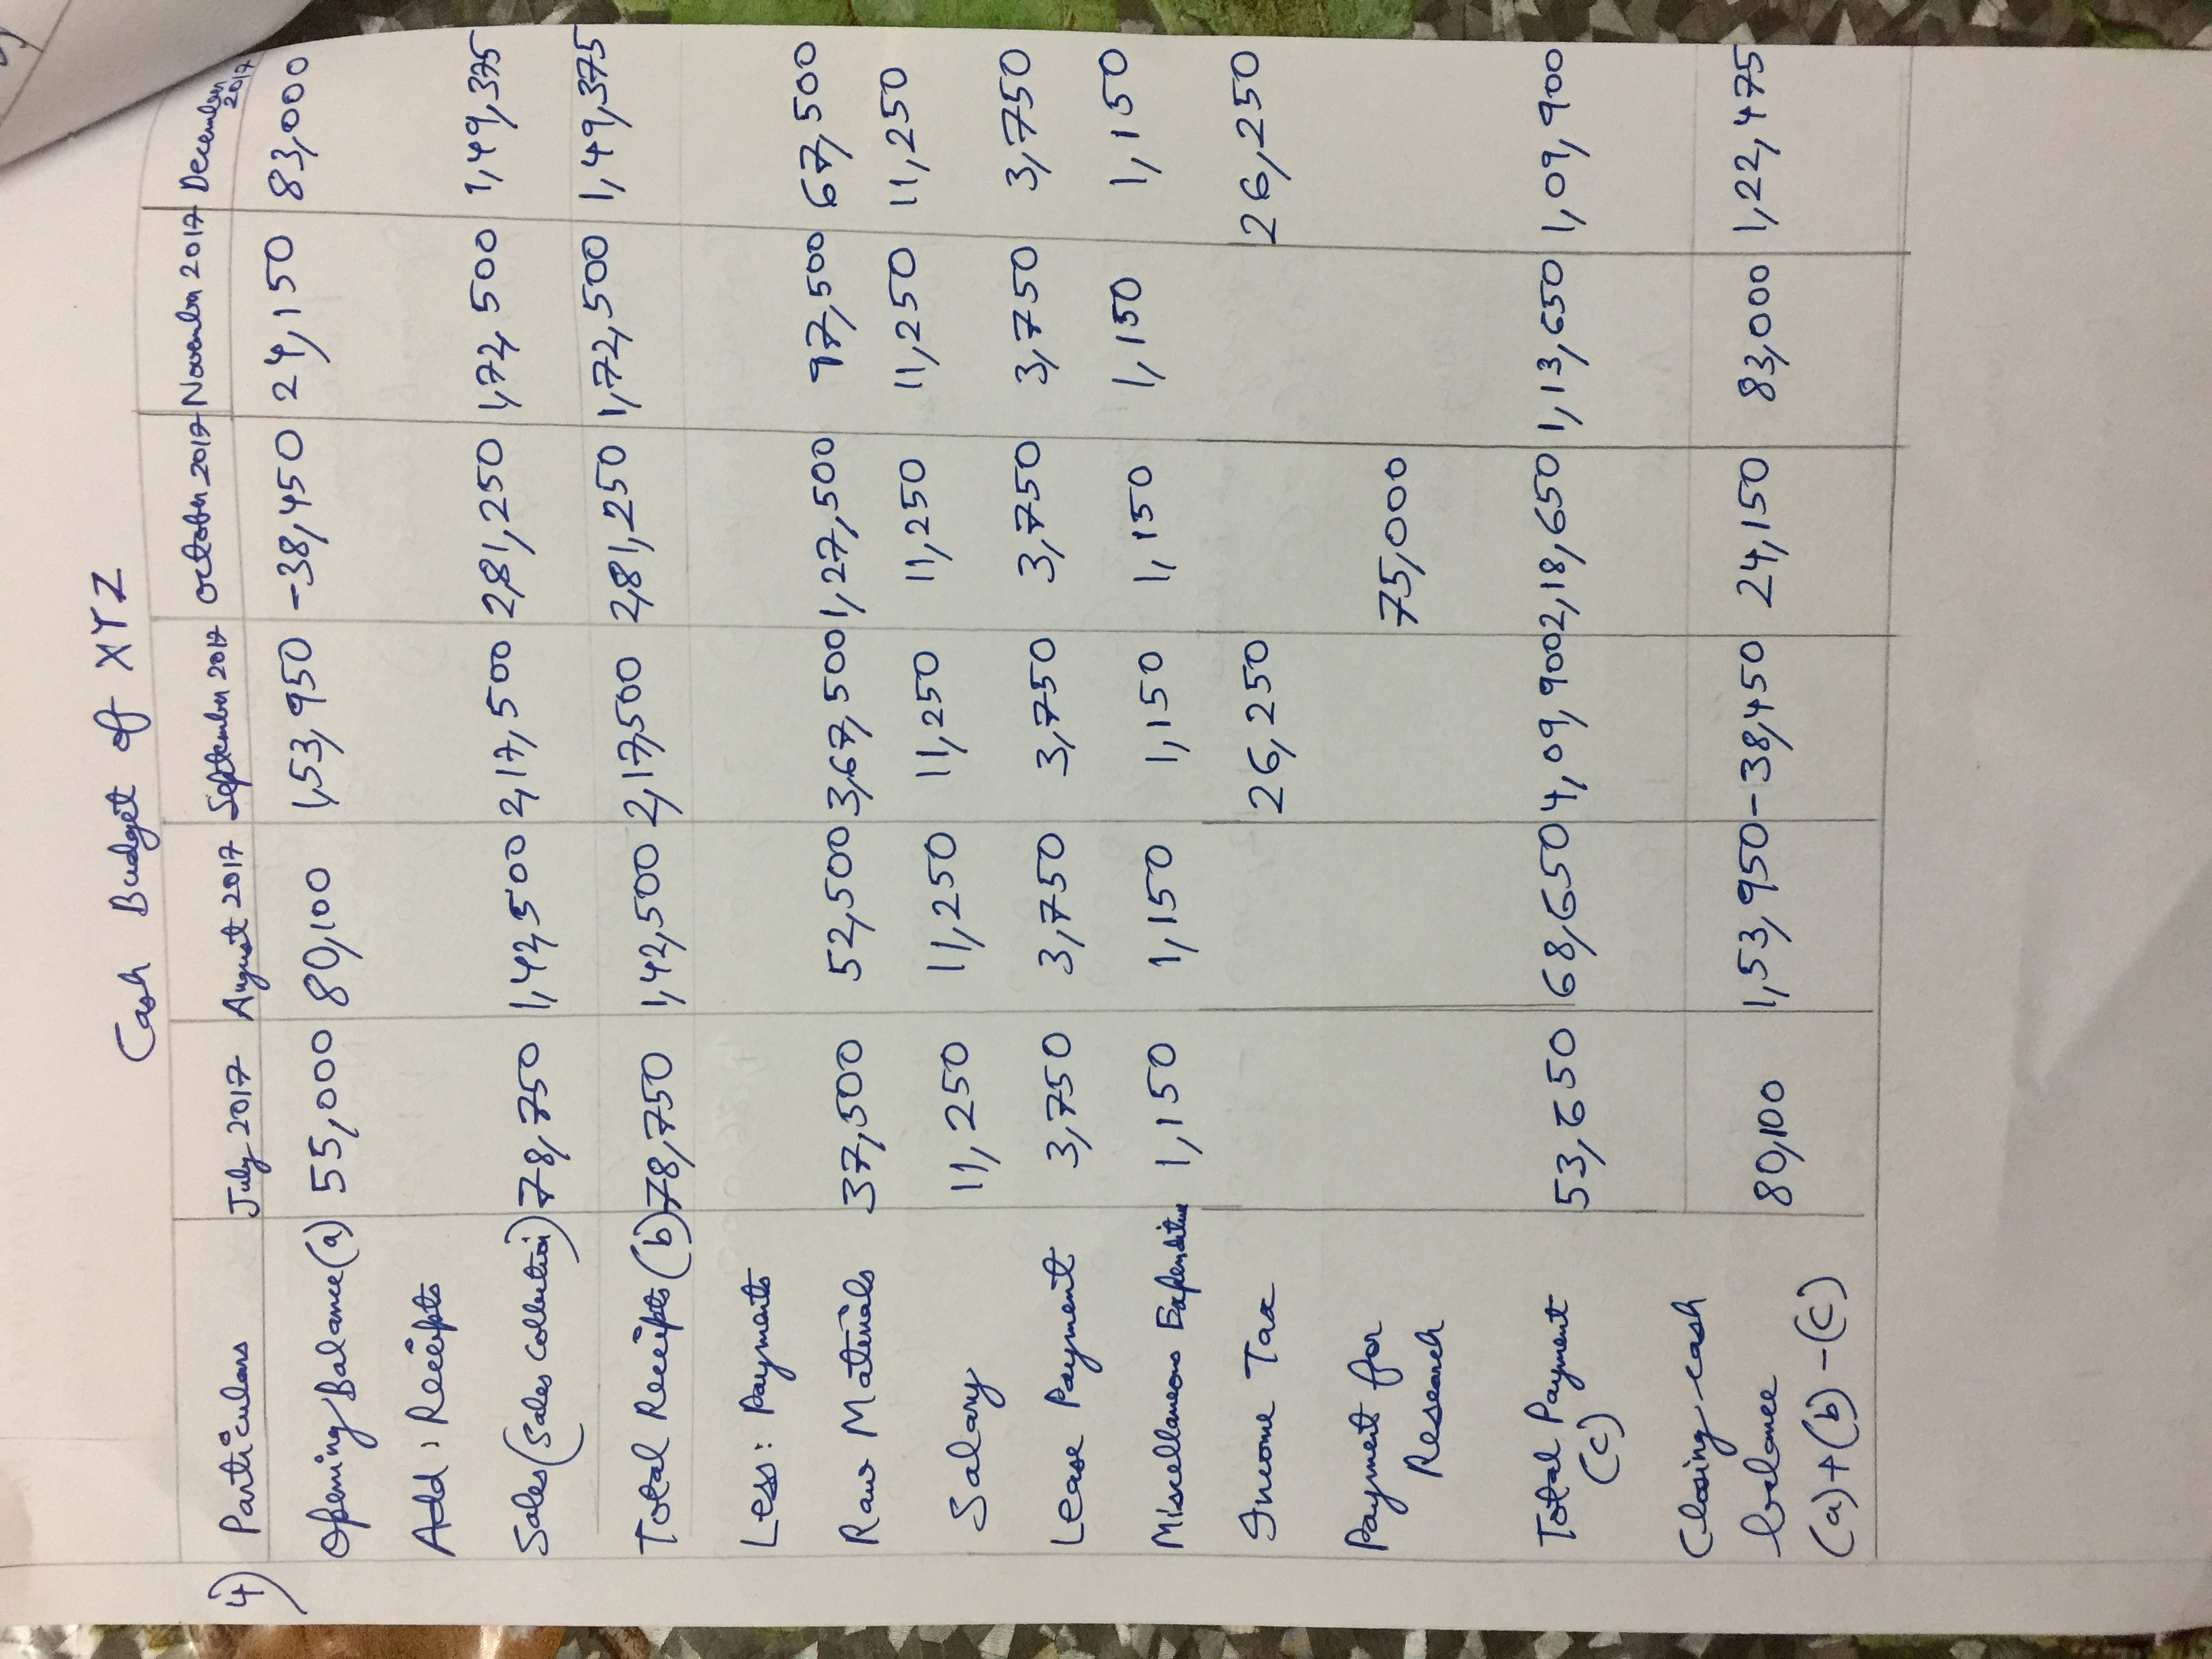 Cash Budget of XYZ
4) Particulars July 2017 August 2017 September 2017 October 2017 November 2017 December 2017
Opening Balance (a) 55,000 80,100 1,53,950 -38,450 24,150 83,000
Add : Receipts
Sales (Sales Collection) 78,750 1,42,500 2,17,500 2,81,250 1,72,500 1,49,375
Total Receipts (b) 78,750 1,42,500 2,17,500 2,81,250 1,72,500 1,49,375
Less: Payments
Raw Materials 37,500 52,500 3,67,500 1,27,500 97,500 67,500
Salary 11,250 11,250 11,250 11,250 11,250 11,250
Lease Payment 3,750 3,750 3,750 3,750 3,750 3,750
Miscellaneous Expenditure 1,150 1,150 1,150 1,150 1,150 1,150
Income Tax 26,250 26,250
Payment for
Research 75,000
Total Payment
(c) 53,650 68,650 4,09,900 2,18,650 1,13,650 1,09,900
Closing cash
balance 80,100 1,53,950 -38,450 24,150 83,000 1,22,475
(a)+(b)-(c)